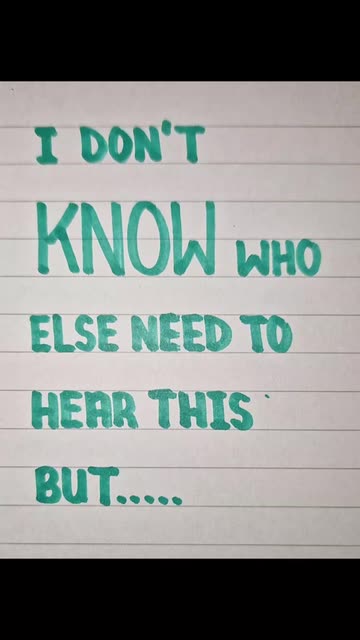 I DON'T
KNOW WHO
ELSE NEED TO
HEAR THIS
BUT.....